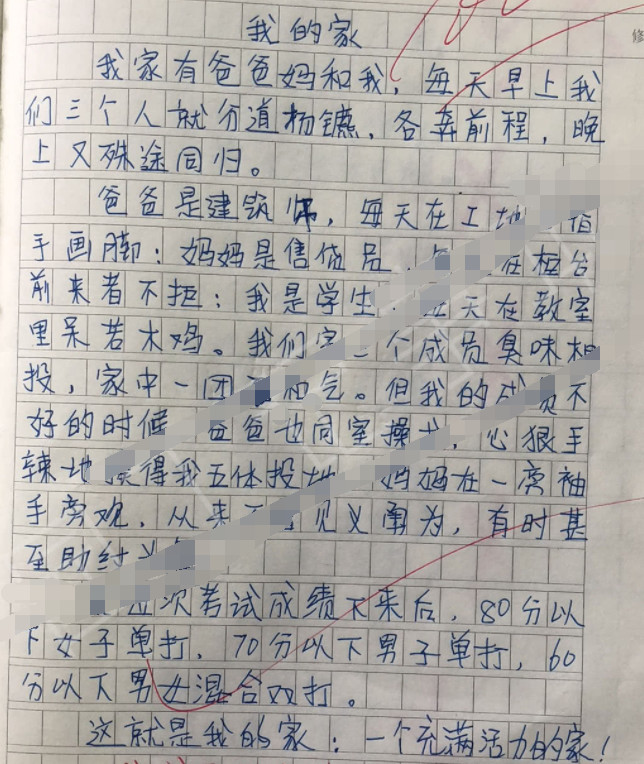 我的家
我家有爸爸妈和我，每天早上我
们三个人就分道扬镳，各奔前程，晚
上又殊途同归。
爸爸是建筑师，每天在工地指
手画脚；妈妈是售货员，在柜台
前来者不拒；我是学生，每天在教室
里呆若木鸡。我们家三个成员臭味相
投，家中一团和气。但我的成不
好的时候 爸爸也同室操戈，心狠手
辣地得我五体投地 妈妈在一旁袖
手旁观，从来不见义勇为，有时甚
至助纣
次考试成绩下来后，80分以
下女子单打，70分以下男子单打，60
分以下男女混合双打。
这就是我的家：一个充满活力的家！